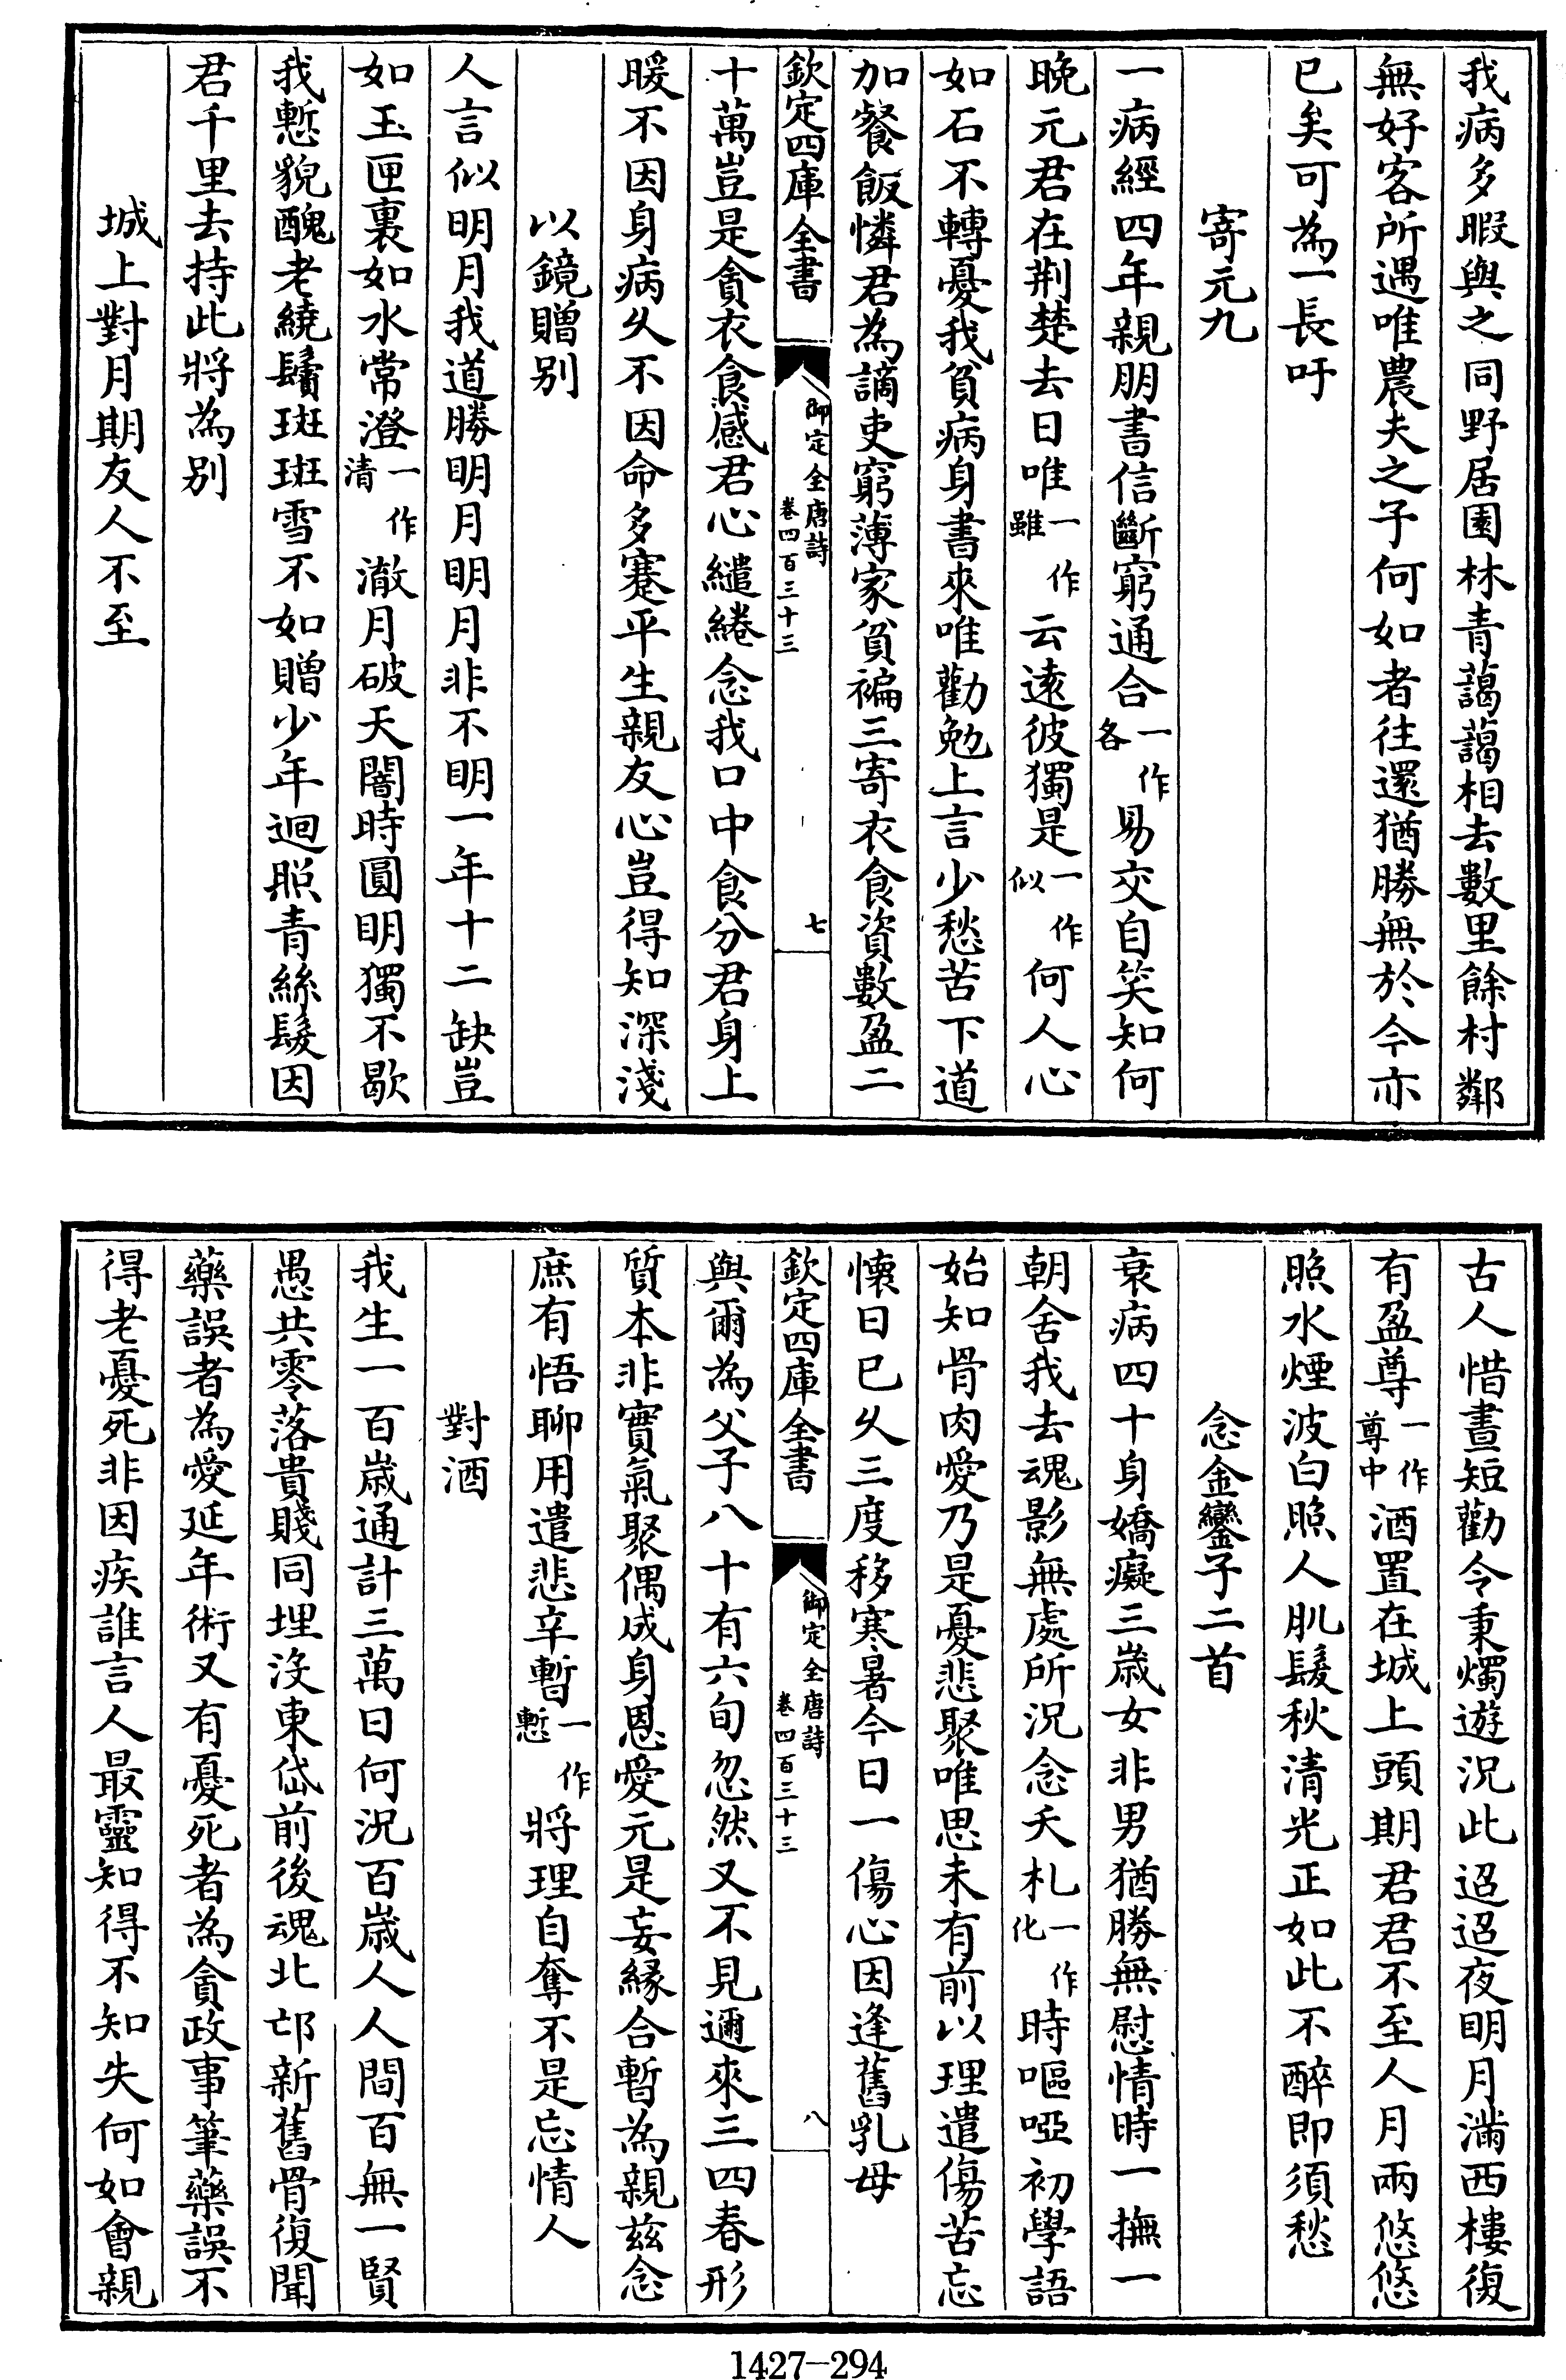 我病多暇與之同野居園林青藹藹相去數里餘村鄰
無好客所遇唯農夫之子何如者往還猶勝無於今亦
已矣可為一長吁
寄元九
一病經四年親朋書信斷窮通合一作各易交自笑知何
晚元君在荆楚去日唯一作雖云遠彼獨是一作似何人心
如石不轉憂我貧病身書來唯勸勉上言少愁苦下道
加餐飯憐君為謫吏窮薄家貧褊三寄衣食資數盈二
欽定四庫全書
御定全唐詩
卷四百三十三
七
十萬豈是貪衣食感君心繾綣念我口中食分君身上
暖不因身病久不因命多蹇平生親友心豈得知深淺
以鏡贈别
人言似明月我道勝明月明月非不明一年十二缺豈
如玉匣裏如水常澄一作清澈月破天闇時圓明獨不歇
我慙貌醜老繞鬢斑斑雪不如贈少年迴照青絲髮因
君千里去持此將為别
城上對月期友人不至
古人惜晝短勸令秉燭遊況此迢迢夜明月滿西樓復
有盈尊一作尊中酒置在城上頭期君君不至人月兩悠悠
照水煙波白照人肌髮秋清光正如此不醉即須愁
念金鑾子二首
衰病四十身嬌癡三歲女非男猶勝無慰情時一撫一
朝舍我去魂影無處所況念夭札一作化時嘔啞初學語
始知骨肉愛乃是憂悲聚唯思未有前以理遣傷苦忘
懷日已久三度移寒暑今日一傷心因逢舊乳母
欽定四庫全書
御定全唐詩
卷四百三十三
八
與爾為父子八十有六旬忽然又不見邇來三四春形
質本非實氣聚偶成身恩愛元是妄緣合暫為親兹念
庶有悟聊用遣悲辛暫一作慙將理自奪不是忘情人
對酒
我生一百歲通計三萬日何況百歲人人間百無一賢
愚共零落貴賤同埋沒東岱前後魂北邙新舊骨復聞
藥誤者為愛延年術又有憂死者為貪政事筆藥誤不
得老憂死非因疾誰言人最靈知得不知失何如會親
1427-294